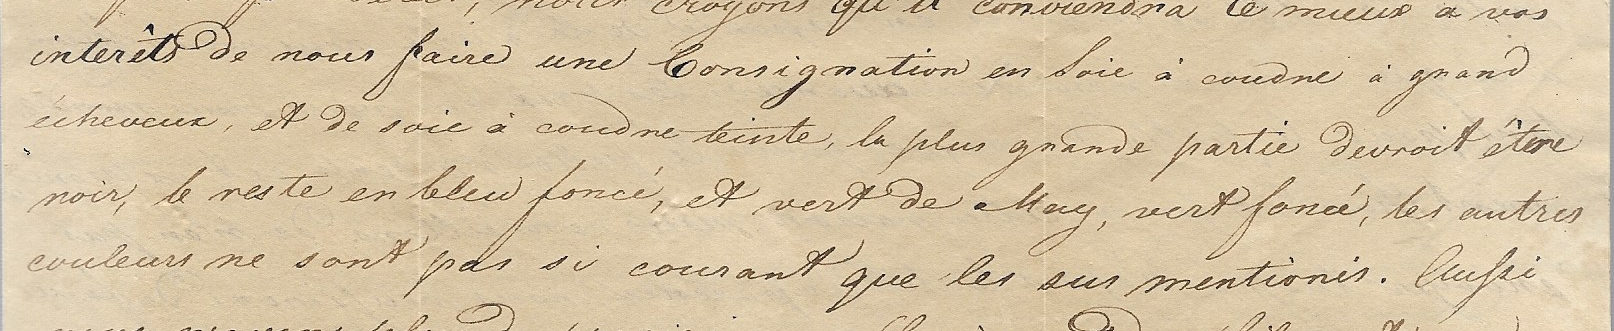 nous croyons qu'il conviendra le mieux à vos
interêts de nous faire une Consignation en Soie à coudre à grand
écheveux, et de soie à coudre teinte, la plus grande partie devroit être
noir, le reste en bleu foncé, et vert de May, vert foncé, les autres
couleurs ne sont pas si courant que les sus mentionis. Aussi